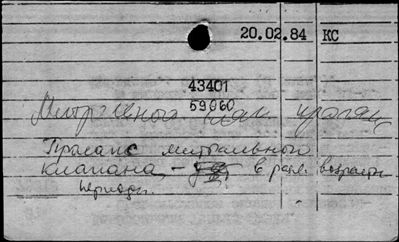 20.02.84 КС
43401
59060
Митрального клап. пролапс
Пролапс митрального
клапана – в разн. возрастн.
периоды.